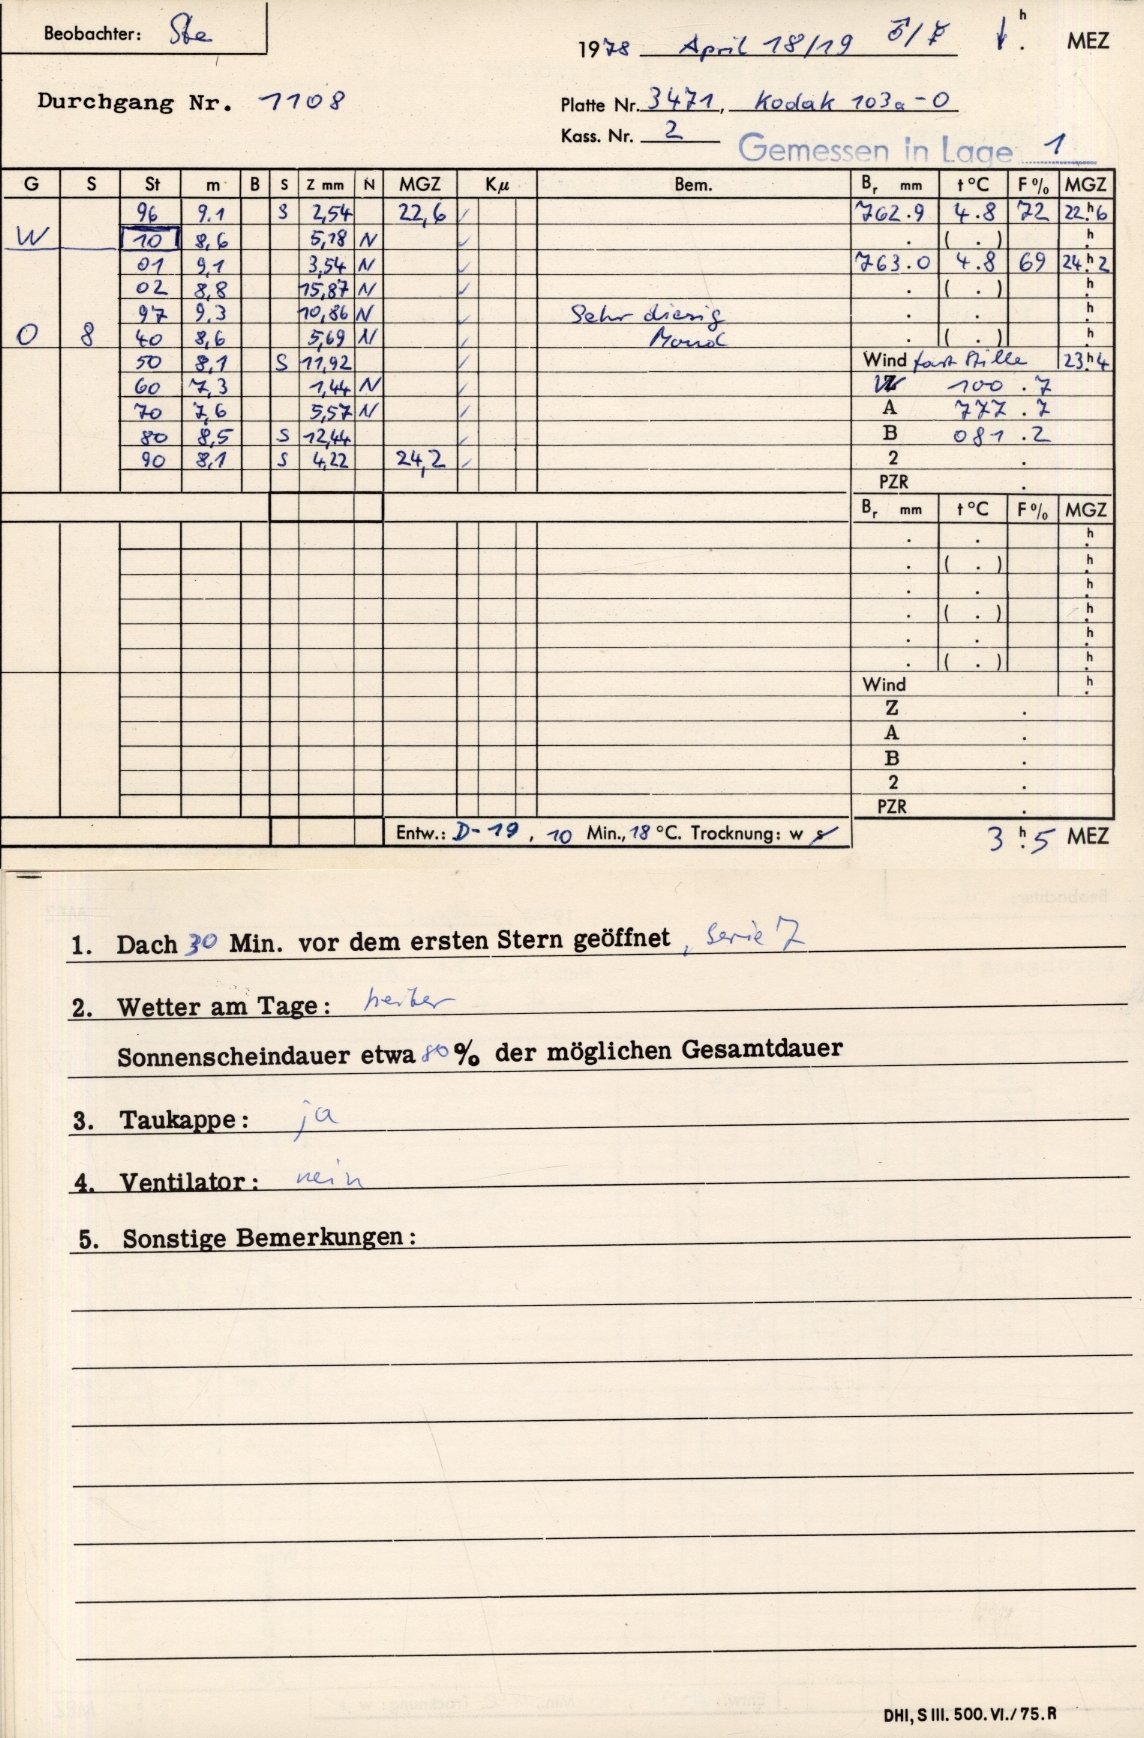 Beobachter: Ste
1978 April 18/19 h . MEZ
Durchgang Nr. 1108
Platte Nr. 3471, Kodak 103a-O
Kass. Nr. 2
Gemessen in Lage 1
G S St m B S Z mm N MGZ Kμ Bem. Br mm t °C F % MGZ
96 9.1 S 2,54 22,6 ✓ 762.9 4.8 72 22.h6
W 10 8,6 5,18 N ✓ . ( . ) h.
01 9,1 3,54 N ✓ 763.0 4.8 69 24.h2
02 8,8 15,87 N ✓ . ( . ) h.
97 9,3 10,86 N ✓ Sehr diesig . . h.
O 8 40 8,6 5,69 N ✓ Mond . ( . ) h.
50 8,1 S 11,92 ✓ Wind fast Stille 23.h4
60 7,3 1,44 N ✓ Z 100.7
70 7,6 5,57 N ✓ A 777.7
80 8,5 S 12,44 ✓ B 081.2
90 8,1 S 4,22 24,2 ✓ 2 .
PZR .
Br mm t °C F % MGZ
. . h.
. ( . ) h.
. . h.
. ( . ) h.
. . h.
. ( . ) h.
Wind h.
Z .
A .
B .
2 .
PZR .
Entw.: D-19, 10 Min., 18 °C. Trocknung: w s
3.h5 MEZ
1. Dach 30 Min. vor dem ersten Stern geöffnet, Serie 7
2. Wetter am Tage: heiter
Sonnenscheindauer etwa 80 % der möglichen Gesamtdauer
3. Taukappe: ja
4. Ventilator: nein
5. Sonstige Bemerkungen:
DHI, S III. 500. VI./75. R